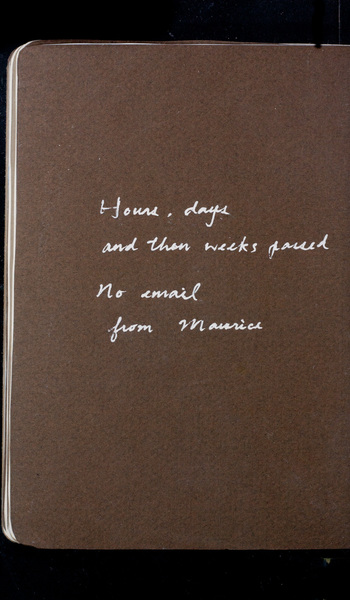 Hours, days
and then weeks passed
No email
from Maurice